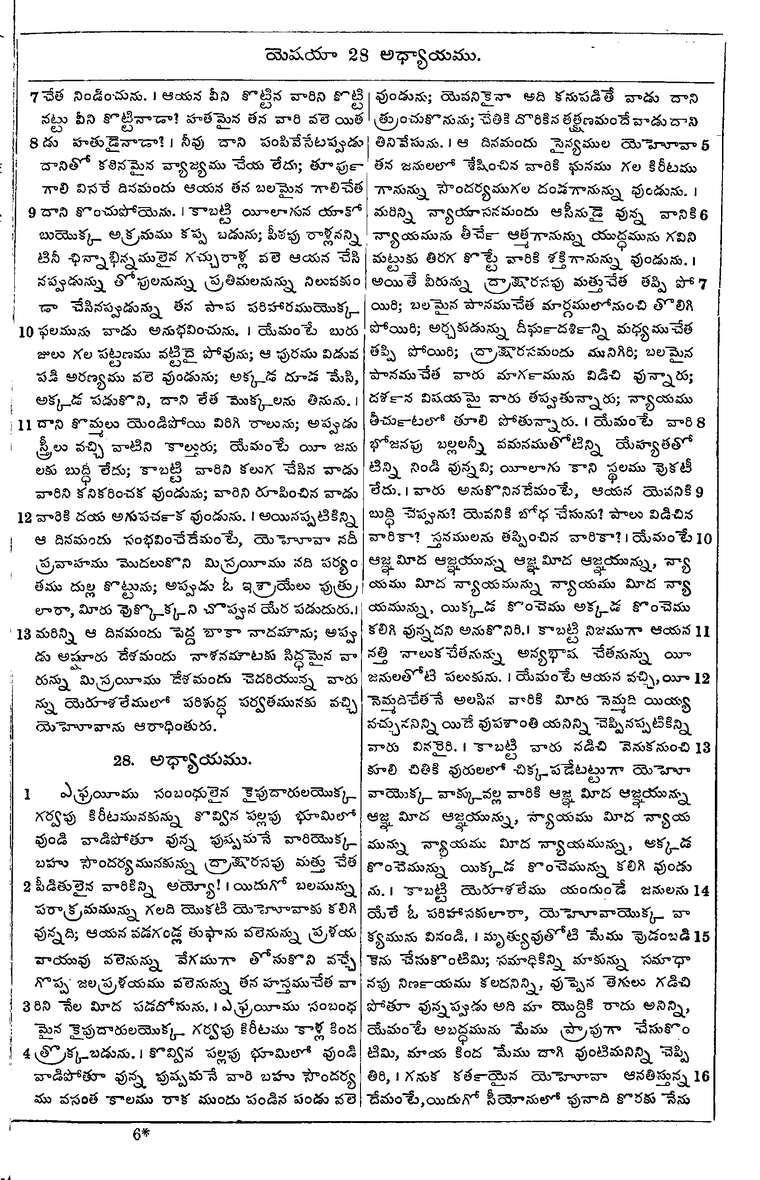 యెషయా 28 అధ్యాయము.
7 చేత నిండించును. । ఆయన వీని కొట్టిన వారిని కొట్టి
నట్టు వీని కొట్టినాడా? హతమైన తన వారి వలె యిత
8 డు హతుడైనాడా? । నీవు దాని పంపివేసేటప్పుడు
దానితో కఠినమైన వ్యాజ్యము చేయ లేదు; తూర్పు
గాలి విసరే దినమందు ఆయన తన బలమైన గాలిచేత
9 దాని కొంచుపోయెను. । కాబట్టి యీలాగున యాకో
బుయొక్క అక్రమము కప్ప బడును; పీఠపు రాళ్లనన్ని
టినీ ఛిన్నాభిన్నములైన గచ్చురాళ్ల వలె ఆయన చేసి
నప్పడున్ను తోపులనున్ను ప్రతిమలనున్ను నిలువకుం
డా చేసినప్పడున్ను తన పాప పరిహారముయొక్క
10 ఫలమును వాడు అనుభవించును. । యేమంటే బురు
జులు గల పట్టణము వట్టిదై పోవును; ఆ పురము విడువ
పడి అరణ్యము వలె వుండును; అక్కడ దూడ మేసి,
అక్కడ పడుకొని, దాని లేత మొక్కలను తినును. ।
11 దాని కొమ్మలు యెండిపోయి విరిగి రాలును; అప్పుడు
స్త్రీలు వచ్చి వాటిని కాల్తురు; యేమంటే యీ జను
లకు బుద్ధి లేదు; కాబట్టి వారిని కలుగ చేసిన వాడు
వారిని కనికరించక వుండును; వారిని రూపించిన వాడు
12 వారికి దయ అగుపర్చక వుండును. । అయినప్పటికిన్ని
ఆ దినమందు సంభవించేదేమంటే, యెహోవా నదీ
ప్రవాహము మొదలుకొని మిస్రయీము నది పర్యం
తము దుల్ల కొట్టును; అప్పుడు ఓ ఇశ్రాయేలు పుత్రు
లారా, మీరు వొక్కొక్కని చొప్పున యేర పడుదురు. ।
13 మరిన్ని ఆ దినమందు పెద్ద బాకా నాదమౌను; అప్పు
డు అష్షూరు దేశమందు నాశనమాటకు సిద్ధమైన వా
రున్ను మిస్రయీము దేశమందు చెదరియున్న వారు
న్ను యెరూశలేములో పరిశుద్ధ పర్వతమునకు వచ్చి
యెహోవాను ఆరాధింతురు.
28. అధ్యాయము.
1 ఎఫ్రయీము సంబంధులైన కైపుదారులయొక్క
గర్వపు కిరీటమునకున్ను కొవ్విన పల్లపు భూమిలో
వుండి వాడిపోతూ వున్న పుష్పమనే వారియొక్క
బహు సౌందర్యమునకున్ను ద్రాక్షారసపు మత్తు చేత
2 పీడితులైన వారికిన్ని అయ్యో! । యిదుగో బలమున్ను
పరాక్రమమున్ను గలది యొకటి యెహోవాకు కలిగి
వున్నది; ఆయన వడగండ్ల తుఫాను వలెనున్ను ప్రళయ
వాయువు వలెనున్ను వేగముగా తోసుకొని వచ్చే
గొప్ప జలప్రళయము వలెనున్ను తన హస్తముచేత వా
3 రిని నేల మీద పడదోసును. । ఎఫ్రయీము సంబంధ
మైన కైపుదారులయొక్క గర్వపు కిరీటము కాళ్ల కింద
4 త్రొక్కబడును. । కొవ్విన పల్లపు భూమిలో వుండి
వాడిపోతూ వున్న పుష్పమనే వారి బహు సౌందర్య
ము వసంత కాలము రాక ముందు పండిన పండు వలె
వుండును; యెవనికైనా అది కనుపడితే వాడు దాని
త్రుంచుకొనును; చేతికి దొరికిన తత్క్షణమందే వాడు దాని
తినివేసును. । ఆ దినమందు సైన్యముల యెహోవా 5
తన జనులలో శేషించిన వారికి ఘనము గల కిరీటము
గానున్ను సౌందర్యముగల దండగానున్ను వుండును. ।
మరిన్ని న్యాయాసనమందు ఆసీనుడై వున్న వానికి 6
న్యాయమును తీర్చే ఆత్మగానున్ను యుద్ధమును గవిని
మట్టుకు తిరగ కొట్టే వారికి శక్తిగానున్ను వుండును. ।
అయితే వీరున్ను ద్రాక్షారసపు మత్తుచేత తప్పి పో 7
యిరి; బలమైన పానముచేత మార్గములోనుంచి తొలిగి
పోయిరి; అర్చకుడున్ను దీర్ఘదర్శిన్ని మధ్యముచేత
తప్పి పోయిరి; ద్రాక్షారసమందు మునిగిరి; బలమైన
పానముచేత వారు మార్గమును విడిచి వున్నారు;
దర్శన విషయమై వారు తప్పుతున్నారు; న్యాయము
తీర్చుటలో తూలి పోతున్నారు. । యేమంటే వారి 8
భోజనపు బల్లలన్నీ వమనముతోటిన్ని యేహ్యతతో
టిన్ని నిండి వున్నవి; యీలాగు కాని స్థలము వొకటీ
లేదు. । వారు అనుకొనినదేమంటే, ఆయన యెవనికి 9
బుద్ధి చెప్పును? యెవనికి బోధ చేసును? పాలు విడిచిన
వారికా? స్తనములను తప్పించిన వారికా? । యేమంటే 10
ఆజ్ఞ మీద ఆజ్ఞయున్ను ఆజ్ఞ మీద ఆజ్ఞయున్ను, న్యా
యము మీద న్యాయమున్ను న్యాయము మీద న్యా
యమున్ను, యిక్కడ కొంచెము అక్కడ కొంచెము
కలిగి వున్నదని అనుకొనిరి. । కాబట్టి నిజముగా ఆయన 11
నత్తి నాలుకచేతనున్ను అన్యభాష చేతనున్ను యీ
జనులతోటి పలుకును. । యేమంటే ఆయన వచ్చి, యీ 12
నెమ్మదిచేతనే అలసిన వారికి మీరు నెమ్మది యియ్య
వచ్చుననిన్ని యిదే వుపశాంతి యనిన్ని చెప్పినప్పటికిన్ని
వారు వినరైరి. । కాబట్టి వారు నడిచి వెనుకనుంచి 13
కూలి చితికి వురులలో చిక్క పడేటట్టుగా యెహో
వాయొక్క వాక్కువల్ల వారికి ఆజ్ఞ మీద ఆజ్ఞయున్ను
ఆజ్ఞ మీద ఆజ్ఞయున్ను, న్యాయము మీద న్యాయ
మున్ను న్యాయము మీద న్యాయమున్ను, అక్కడ
కొంచెమున్ను యిక్కడ కొంచెమున్ను కలిగి వుండు
ను. । కాబట్టి యెరూశలేము యందుండే జనులను 14
యేలే ఓ పరిహాసకులారా, యెహోవాయొక్క వా
క్యమును వినండి. । మృత్యువుతోటి మేము వొడంబడి 15
కెను చేసుకొంటిమి; సమాధికిన్ని మాకున్ను సమాధా
నపు నిర్ణయము కలదనిన్ని, వుప్పెన తెగులు గడిచి
పోతూ వున్నప్పుడు అది మా యొద్దికి రాదు అనిన్ని,
యేమంటే అబద్ధమును మేము ప్రాపుగా చేసుకొం
టిమి, మాయ కింద మేము దాగి వుంటిమనిన్ని చెప్పి
తిరి, । గనుక కర్తయైన యెహోవా ఆనతిస్తున్న 16
దేమంటే, యిదుగో సీయోనులో పునాది కొరకు నేను
6*